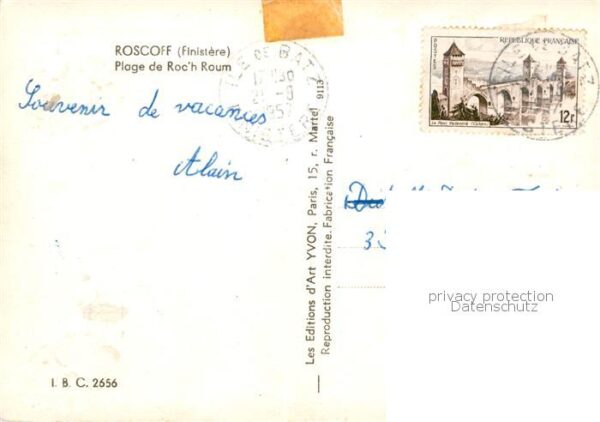 ROSCOFF (Finistère)
Plage de Roc'h Roum
Souvenir de vacances
Alain
I. B. C. 2656
ILE DE BATZ
FINISTERE
9113
Les Editions d'Art YVON, Paris, 15, r. Martel
Reproduction interdite. Fabrication Française
REPUBLIQUE FRANÇAISE
POSTES
12f.
Le Pont Valentré (Cahors)
privacy protection
Datenschutz